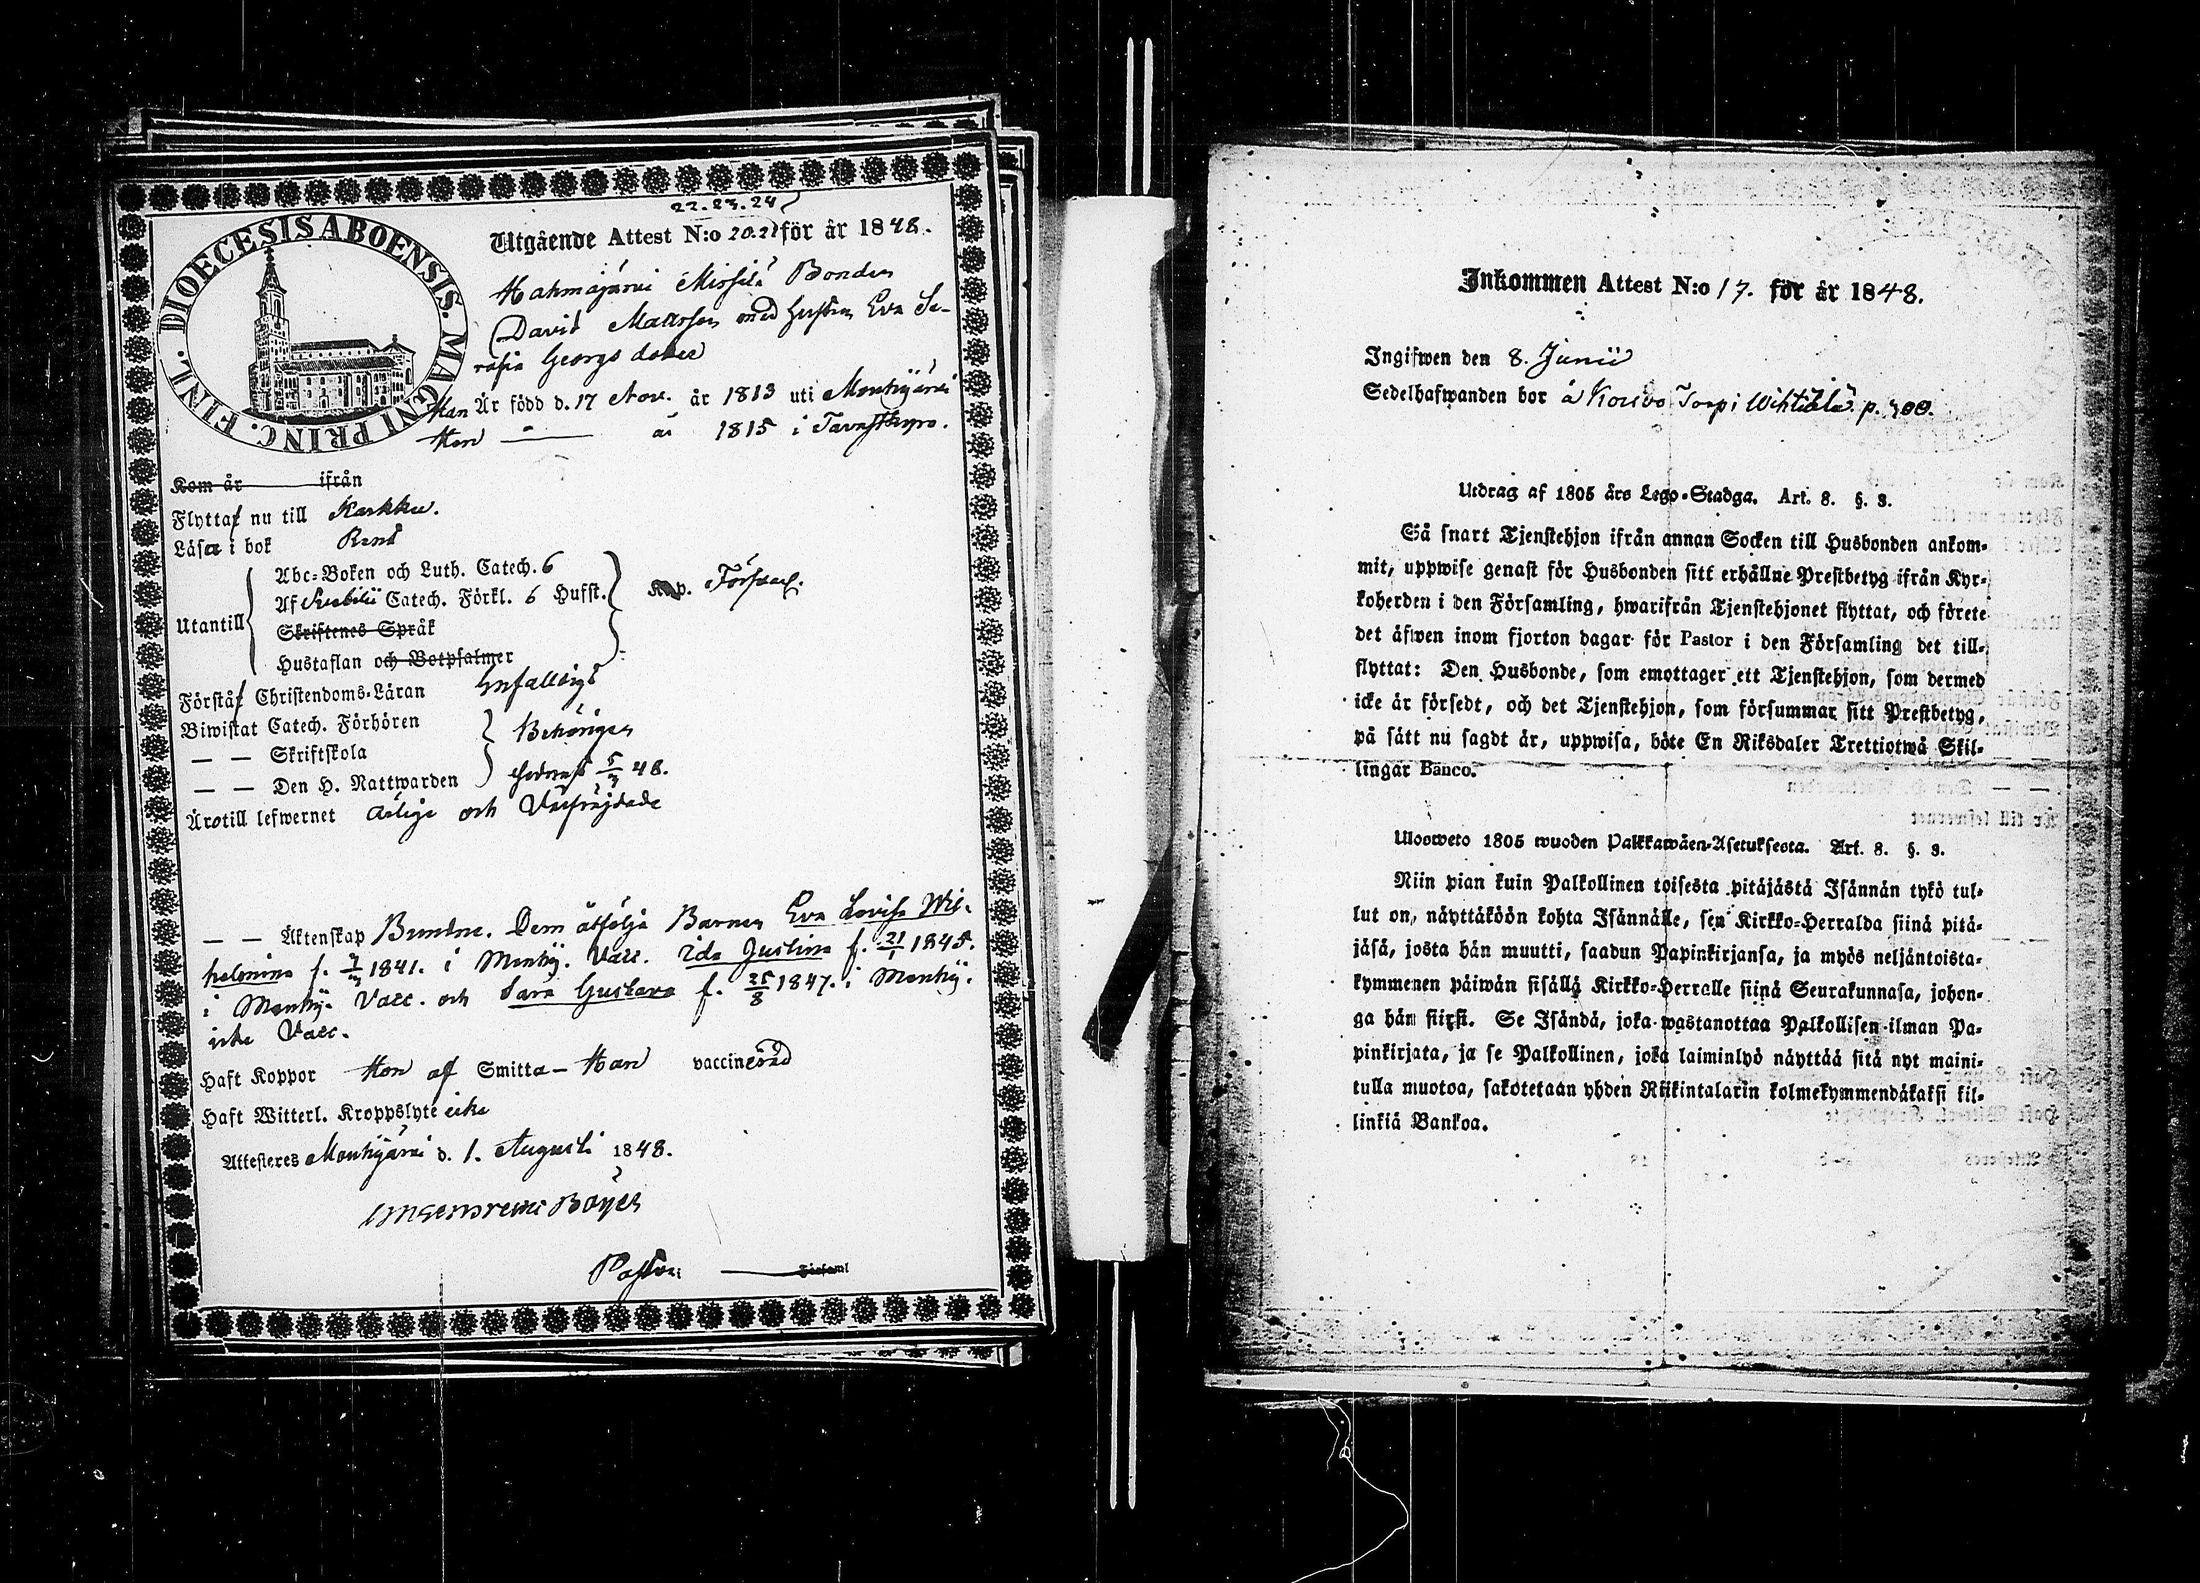 DIOECESIS ABOENSIS. MAGNI PRINC. FINL.
22. 23. 24
Utgående Attest N:o 20. 21 för år 1848.
Hahmajärvi Bonden
David Mattsson med hustru Eva Se-
rafia Georgs dotter
Han Är född d. 17 Nov. år 1813 uti Mouhijärvi
Hon — " — år 1815 i Tavastkyro.
Kom år ifrån
Flyttaf nu till Karkku.
Läsa i bok Rent
Utantill
Abc-Boken och Luth. Catech. 6
Af Svebilii Catech. Förkl. 6 Hufst.
Skriftenes Språk
Hustaflan och Botpsalmer
Kap. Försvarl.
Förstå Christendoms-Läran Enfalldigt
Biwistat Catech. Förhören
— — Skriftskola Behörigen
— — Den H. Nattwarden sednast 5/3 48.
Äro till lefwernet ärlige och Välfrejdade
— — Äktenskap Bundne. Dem åtfölja Barnen Eva Lovisa Wil-
helmina f. 7/3 1841. i Mouhij. Vacc. Ida Justina f. 21/1 1845.
i Mouhij. Vacc. och Sara Gustava f. 25/8 1847. i Mouhij.
icke Vacc.
Haft Koppor Hon af Smitta – Han vaccinerad
Haft Witterl. Kroppslyte icke
Attesteres Mouhijärvi d. 1. Augusti 1848.
Pastor Församl
Inkommen Attest N:o 17. för år 1848.
Ingifwen den 8. Junii
Sedelhafwanden bor å Torp i p.
Utdrag af 1805 års Lego-Stadga. Art. 8. §. 3.
Så snart Tjenstehjon ifrån annan Socken till Husbonden ankom-
mit, uppwise genast för Husbonden sitt erhållne Prestbetyg ifrån Kyr-
koherden i den Församling, hwarifrån Tjenstehjonet flyttat, och förete
det äfwen inom fjorton dagar för Pastor i den Församling det till-
flyttat: Den Husbonde, som emottager ett Tjenstehjon, som dermed
icke är försedt, och det Tjenstehjon, som försummar sitt Prestbetyg,
på sätt nu sagdt är, uppwisa, böte En Riksdaler Trettiotwå Skil-
lingar Banco.
Uloosweto 1805 wuoden Palkkawäen-Asetuksesta. Art. 8. §. 3.
Niin pian kuin Palkollinen toisesta pitäjästä Isännän tykö tul-
lut on, näyttäköön kohta Isännälle, sen Kirkko-Herralda siinä pitä-
jäsä, josta hän muutti, saadun Papinkirjansa, ja myös neljäntoista-
kymmenen päiwän sisällä Kirkko-Herralle siinä Seurakunnasa, johon-
ga hän siirsi. Se Isändä, joka wastanottaa Palkollisen ilman Pa-
pinkirjata, ja se Palkollinen, joka laiminlyö näyttää sitä nyt maini-
tulla muotoa, sakotetaan yhden Riikintalarin kolmekymmendäkaksi kil-
linkiä Bankoa.